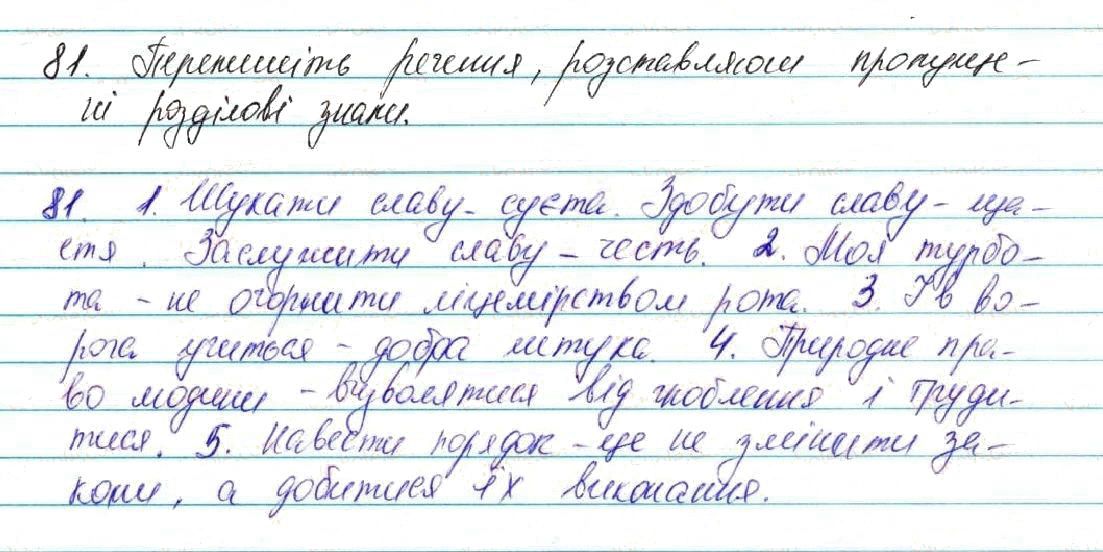 81. Перепишіть речення, розставляючи пропуще-
ні розділові знаки.
81. 1. Шукати славу - суєта. Здобути славу - ща-
стя. Заслужити славу - честь. 2. Моя турбо-
та - не огорнити лицемірством рота. 3. І в во-
рога учиться - добра штука. 4. Природне пра-
во людини - визволятися від гноблення і труди-
тися. 5. Навести порядок - це не змінити за-
кони, а добитися їх виконання.